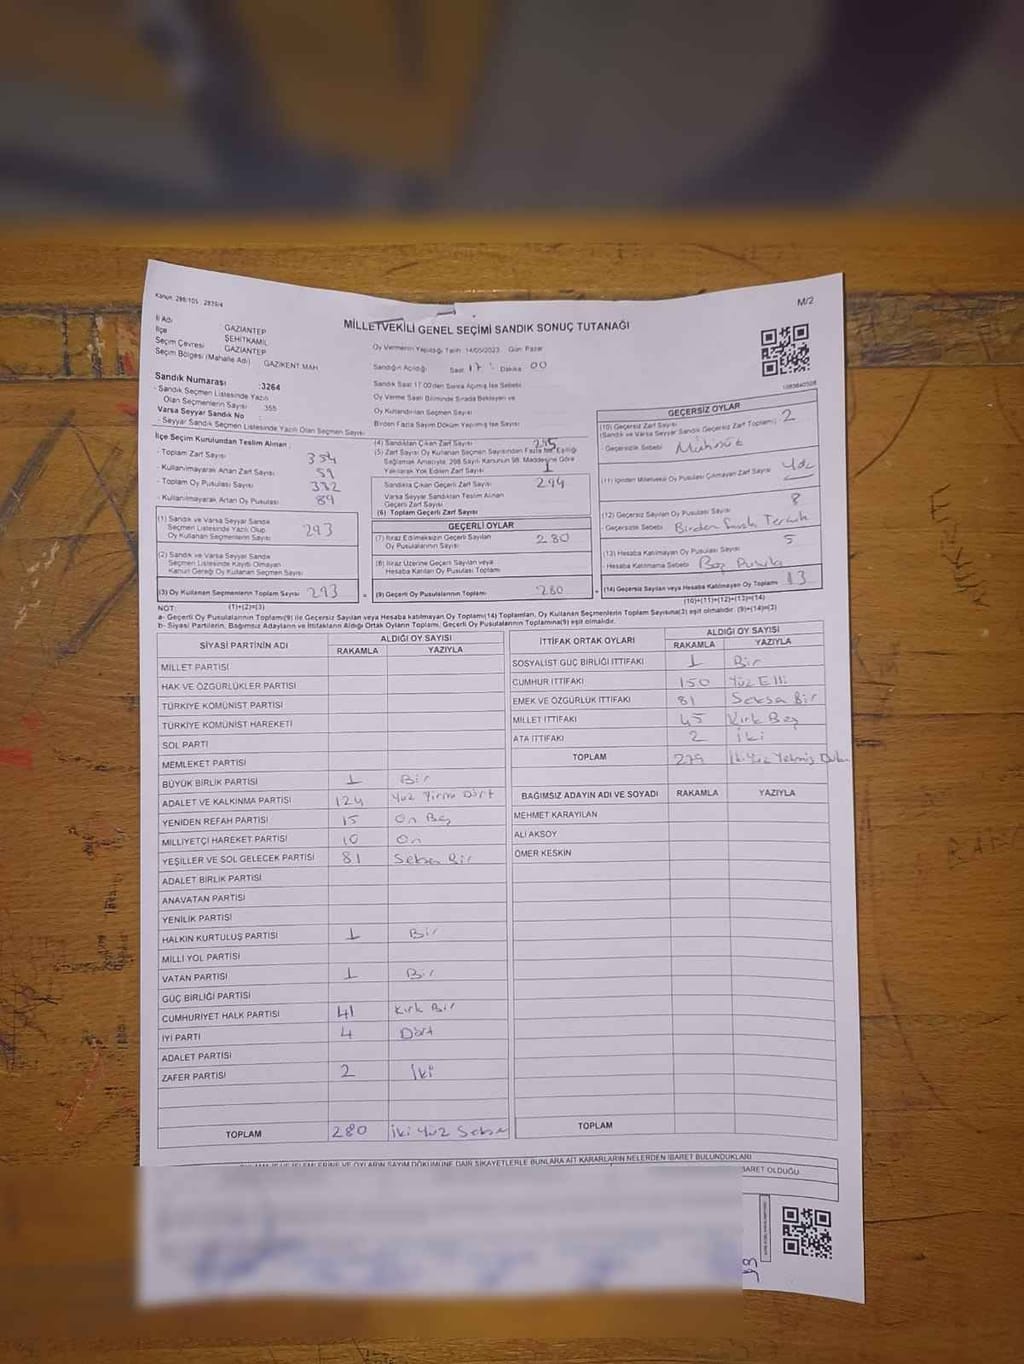 Kanun: 298/105 - 2839/4
M/2
MİLLETVEKİLİ GENEL SEÇİMİ SANDIK SONUÇ TUTANAĞI
İl Adı GAZİANTEP
İlçe ŞEHİTKAMİL
Seçim Çevresi GAZİANTEP
Seçim Bölgesi (Mahalle Adı) GAZİKENT MAH
Sandık Numarası :3264
- Sandık Seçmen Listesinde Yazılı
Olan Seçmenlerin Sayısı : 355
Varsa Seyyar Sandık No :
- Seyyar Sandık Seçmen Listesinde Yazılı Olan Seçmen Sayısı
Oy Vermenin Yapıldığı Tarih: 14/05/2023 Gün: Pazar
Sandığın Açıldığı Saat 17 : Dakika 00
Sandık Saat 17:00'den Sonra Açılmış İse Sebebi
Oy Verme Saati Bitiminde Sırada Bekleyen ve
Oy Kullandırılan Seçmen Sayısı
Birden Fazla Sayım Döküm Yapılmış İse Sayısı
İlçe Seçim Kurulundan Teslim Alınan ;
- Toplam Zarf Sayısı 354
- Kullanılmayarak Artan Zarf Sayısı 59
- Toplam Oy Pusulası 332
- Kullanılmayarak Artan Oy Pusulası 89
(1) Sandık ve Varsa Seyyar Sandık
Seçmen Listesinde Yazılı Olup
Oy Kullanan Seçmenlerin Sayısı 293
(2) Sandık ve Varsa Seyyar Sandık
Seçmen Listesinde Kayıtlı Olmayan
Kanun Gereği Oy Kullanan Seçmen Sayısı
(3) Oy Kullanan Seçmenlerin Toplam Sayısı 293
(1)+(2)=(3)
(4) Sandıktan Çıkan Zarf Sayısı 295
(5) Zarf Sayısı Oy Kullanan Seçmen Sayısından Fazla ise, Eşitliği
Sağlamak Amacıyla, 298 Sayılı Kanunun 98. Maddesine Göre
Yakılarak Yok Edilen Zarf Sayısı 1
Sandıkta Çıkan Geçerli Zarf Sayısı 294
Varsa Seyyar Sandıktan Teslim Alınan
Geçerli Zarf Sayısı
(6) Toplam Geçerli Zarf Sayısı
GEÇERLİ OYLAR
(7) İtiraz Edilmeksizin Geçerli Sayılan
Oy Pusulalarının Sayısı 280
(8) İtiraz Üzerine Geçerli Sayılan veya
Hesaba Katılan Oy Pusulası Toplamı
(9) Geçerli Oy Pusulalarının Toplamı 280
GEÇERSİZ OYLAR
(10) Geçersiz Zarf Sayısı
(Sandık ve Varsa Seyyar Sandık Geçersiz Zarf Toplamı) 2
- Geçersizlik Sebebi
(11) İçinden Milletvekili Oy Pusulası Çıkmayan Zarf Sayısı
(12) Geçersiz Sayılan Oy Pusulası Sayısı 8
- Geçersizlik Sebebi
(13) Hesaba Katılmayan Oy Pusulası Sayısı 5
- Hesaba Katılmama Sebebi Boş Pusula
(14) Geçersiz Sayılan veya Hesaba Katılmayan Oy Toplamı 13
(10)+(11)+(12)+(13)=(14)
NOT:
a- Geçerli Oy Pusulalarının Toplamı(9) ile Geçersiz Sayılan veya Hesaba katılmayan Oy Toplamı(14) Toplamları, Oy Kullanan Seçmenlerin Toplam Sayısına(3) eşit olmalıdır. (9)+(14)=(3)
b- Siyasi Partilerin, Bağımsız Adayların ve İttifakların Aldığı Ortak Oyların Toplamı, Geçerli Oy Pusulalarının Toplamına(9) eşit olmalıdır.
SİYASİ PARTİNİN ADI ALDIĞI OY SAYISI
RAKAMLA YAZIYLA
MİLLET PARTİSİ
HAK VE ÖZGÜRLÜKLER PARTİSİ
TÜRKİYE KOMÜNİST PARTİSİ
TÜRKİYE KOMÜNİST HAREKETİ
SOL PARTİ
MEMLEKET PARTİSİ
BÜYÜK BİRLİK PARTİSİ 1 Bir
ADALET VE KALKINMA PARTİSİ 124 Yüz Yirmi Dört
YENİDEN REFAH PARTİSİ 15 On Beş
MİLLİYETÇİ HAREKET PARTİSİ 10 On
YEŞİLLER VE SOL GELECEK PARTİSİ 81 Seksa Bir
ADALET BİRLİK PARTİSİ
ANAVATAN PARTİSİ
YENİLİK PARTİSİ
HALKIN KURTULUŞ PARTİSİ 1 Bir
MİLLİ YOL PARTİSİ
VATAN PARTİSİ 1 Bir
GÜÇ BİRLİĞİ PARTİSİ
CUMHURİYET HALK PARTİSİ 41 Kırk Bir
İYİ PARTİ 4 Dört
ADALET PARTİSİ
ZAFER PARTİSİ 2 İki
TOPLAM 280 İki Yüz Sekse
İTTİFAK ORTAK OYLARI ALDIĞI OY SAYISI
RAKAMLA YAZIYLA
SOSYALİST GÜÇ BİRLİĞİ İTTİFAKI 1 Bir
CUMHUR İTTİFAKI 150 Yüz Elli
EMEK VE ÖZGÜRLÜK İTTİFAKI 81 Seksa Bir
MİLLET İTTİFAKI 45 Kırk Beş
ATA İTTİFAKI 2 İki
TOPLAM 279
BAĞIMSIZ ADAYIN ADI VE SOYADI RAKAMLA YAZIYLA
MEHMET KARAYILAN
ALİ AKSOY
ÖMER KESKİN
TOPLAM
OYLARIN SAYIM DÖKÜMÜNE DAİR ŞİKAYETLERLE BUNLARA AİT KARARLARIN NELERDEN İBARET BULUNDUKLARI
BARET OLDUĞU